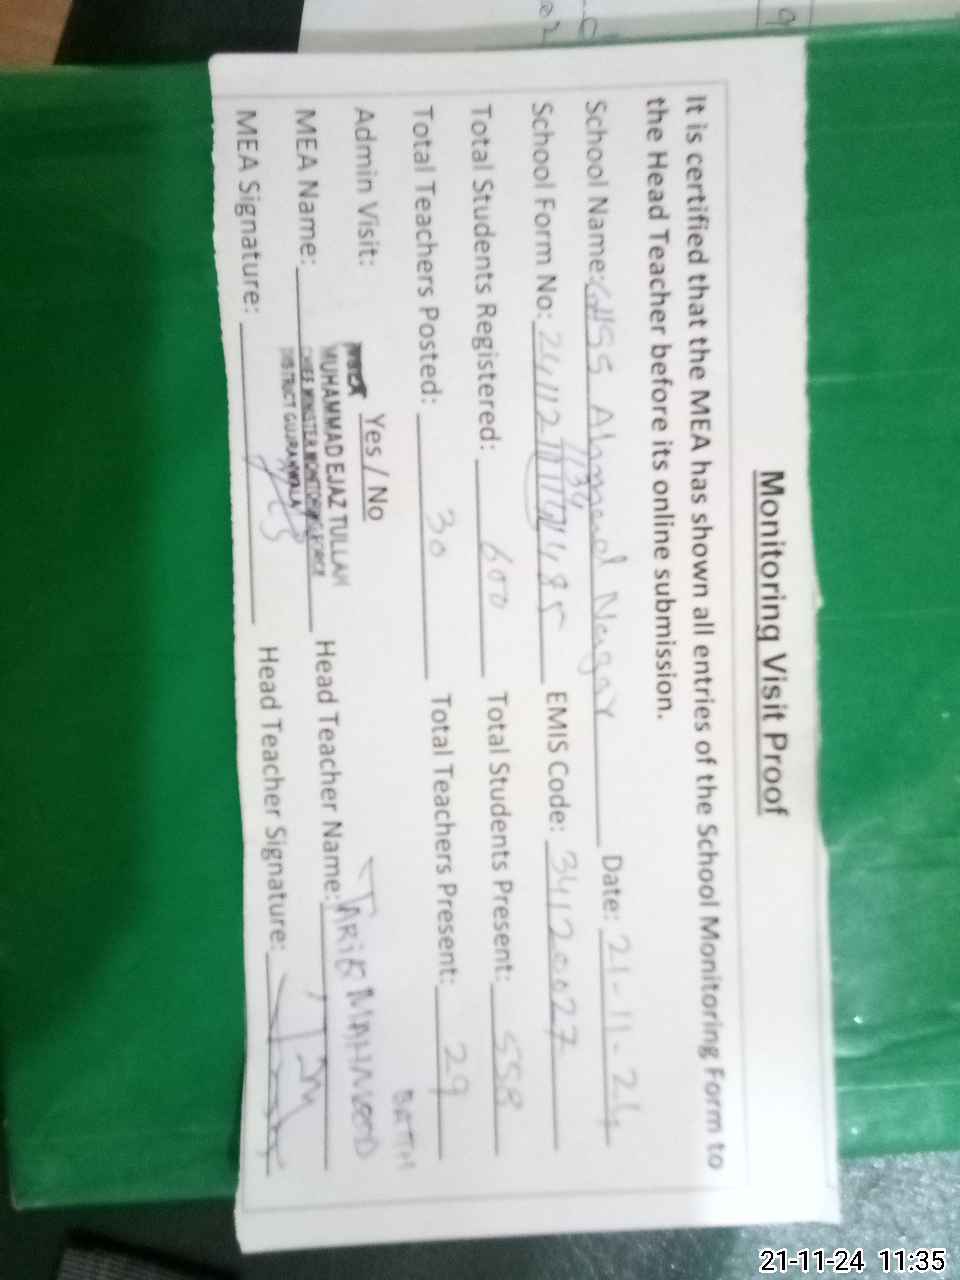 Monitoring Visit Proof
It is certified that the MEA has shown all entries of the School Monitoring Form to
the Head Teacher before its online submission.
School Name: GHSS Ahmad Nagar Date: 21-11-24
School Form No: 24112 1485 EMIS Code: 34120027
1134
Total Students Registered: 600 Total Students Present: 558
Total Teachers Posted: 30 Total Teachers Present: 29
Admin Visit: Yes / No
BATTH
MUHAMMAD EJAZ TULLAH
MEA Name: CHIEF MINISTER MONITORING FORCE Head Teacher Name: TARIQ MAHMOOD
DISTRICT GUJRANWALA
MEA Signature: Head Teacher Signature:
21-11-24 11:35